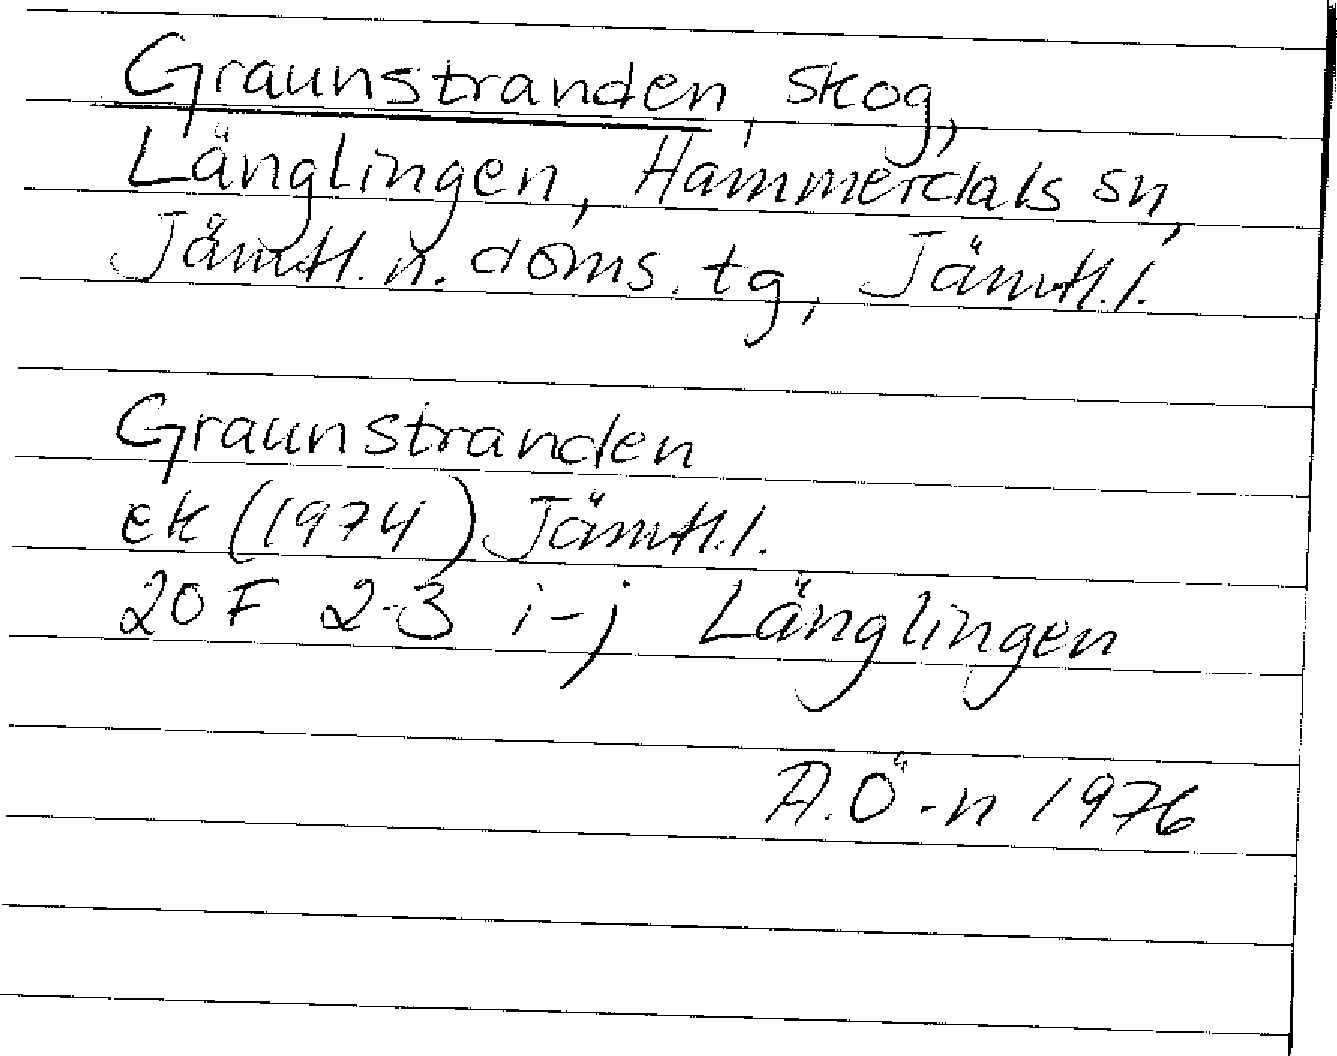 Graunstranden, skog,
Länglingen, Hammerdals sn,
Jämtl. n. doms. tg, Jämtl. l.
Graunstranden
ek (1974) Jämtl. l.
20 F 2-3 i-j Länglingen
A.Ö-n 1976